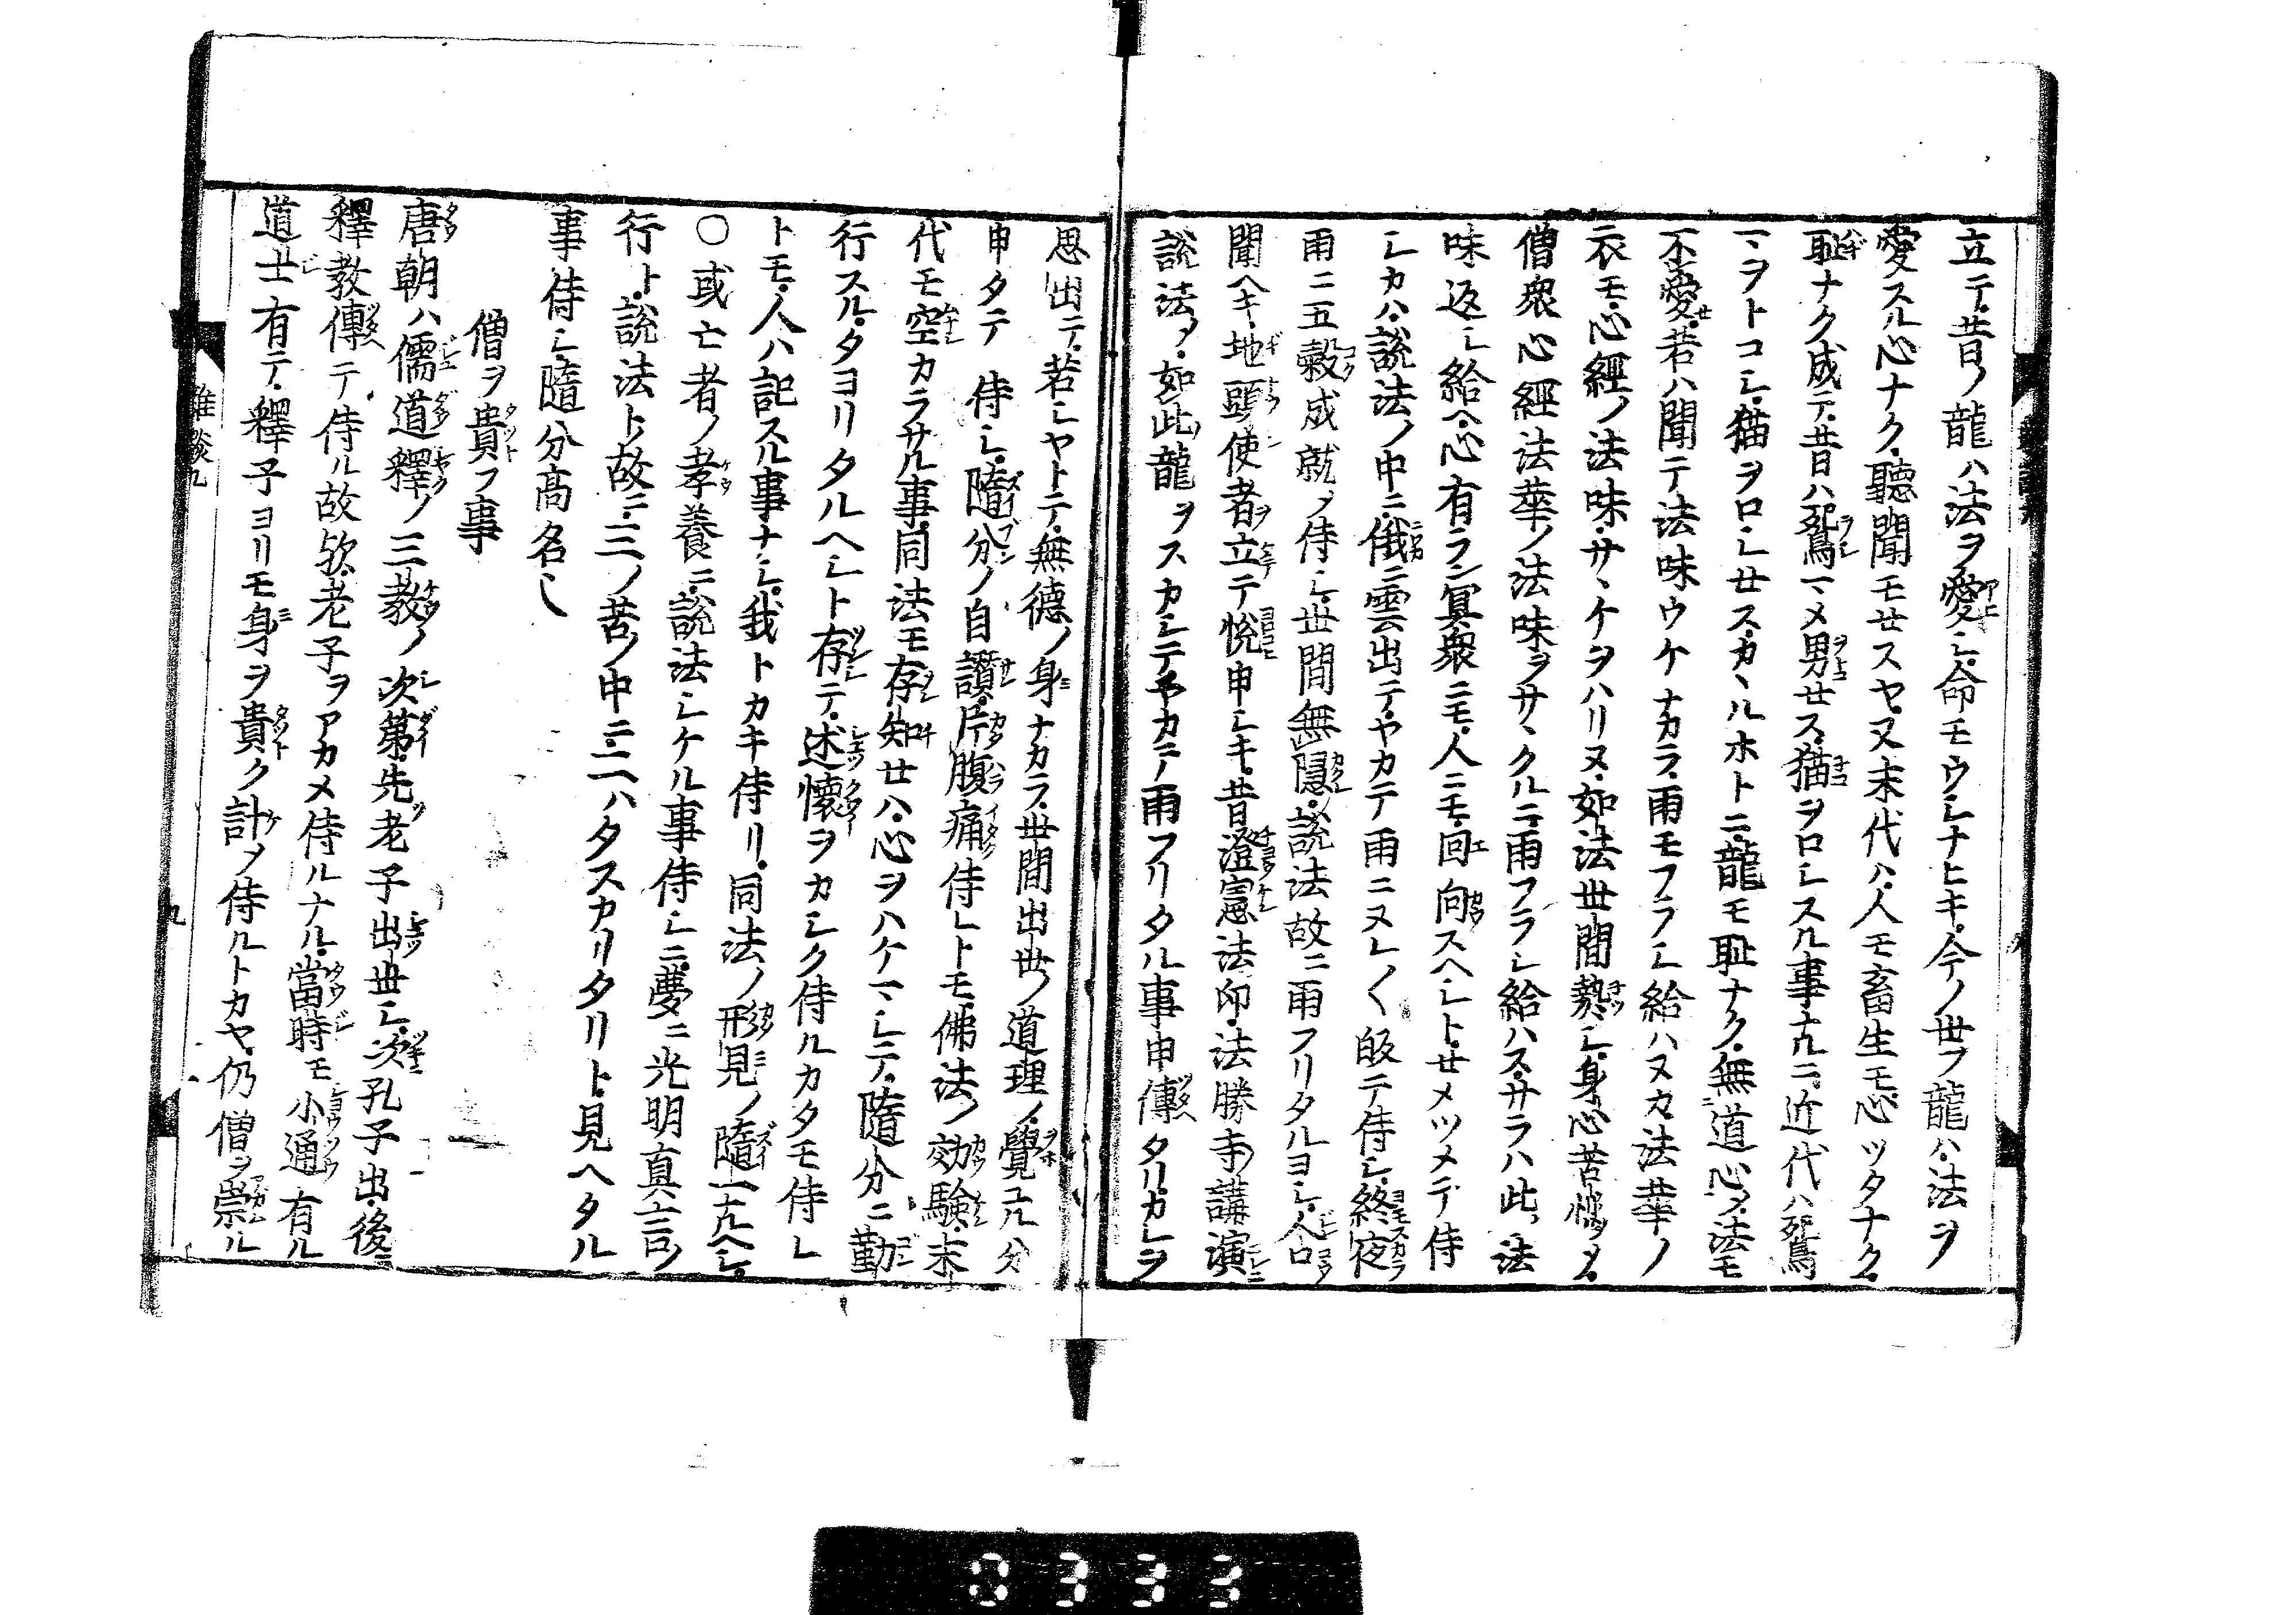 立テ昔ノ龍ハ法ヲ愛シ命モウシナヒキ今ノ世ノ龍ハ法ヲ
愛スル心ナク聽聞モセスヤ又末代ハ人モ畜生モ心ツタナク
恥ナク成テ昔ハ鴛マメ男セス猫ヲロシスル事ナルニ近代ハ鴛
マヲトコシ猫ヲロシセスカヽルホトニ龍モ恥ナク無道心ノ法モ
不愛若ハ聞テ法味ウケナカラ雨モフラシ給ハヌカ法華ノ
衣モ心經ノ法味サヽケヲハリヌ如法世間熱シ身心苦惱
僧衆心經法華ノ法味ヲサヽクルニ雨フラシ給ハスサラハ此法
味返シ給ヘ心有ラン冥衆ニモ人ニモ回向スヘシトセメツメテ侍
シカハ說法ノ中ニ俄ニ雲出テヤカテ雨ニヌレ〱皈テ侍シ終夜
雨ニ五穀成就ノ侍シ世間無隱說法故ニ雨フリタルヨシ人口
聞ヘキ地頭使者立テ悅申シキ昔澄憲法印法勝寺講演
說法ノ如此龍ヲスカシテヤカテ雨フリタル事申傳タリカレヲ
思出テ若シヤトテ無德ノ身ナカラ世間出世ノ道理ノ覺ユル分
申タテ侍シ隨分ノ自讚片腹痛侍レトモ佛法ノ効驗末
代モ空カラサル事同法モ存知セハ心ヲハケマシテ隨分ニ勤
行スルタヨリタルヘシト存テ述懷ヲカシク侍ルカタモ侍レ
トモ人ハ記スル事ナシ我トカキ侍リ同法ノ形見ノ隨一ナルヘシ
○或亡者ノ孝養ニ說法シケル事侍シニ夢ニ光明真言ノ
行ト說法トノ故ニ三ノ苦ノ中ニ二ハタスカリタリト見ヘタル
事侍シ隨分高名シ
僧ヲ貴フ事
唐朝ハ儒道釋ノ三教ノ次第先老子出世シ次孔子出後ニ
釋教傳テ侍ル故歟老子ヲアカメ侍ルナル當時モ小通有ル
道士有テ釋子ヨリモ身ヲ貴ク計ノ侍ルトカヤ仍僧ヲ崇ル
雜談九
九
0333